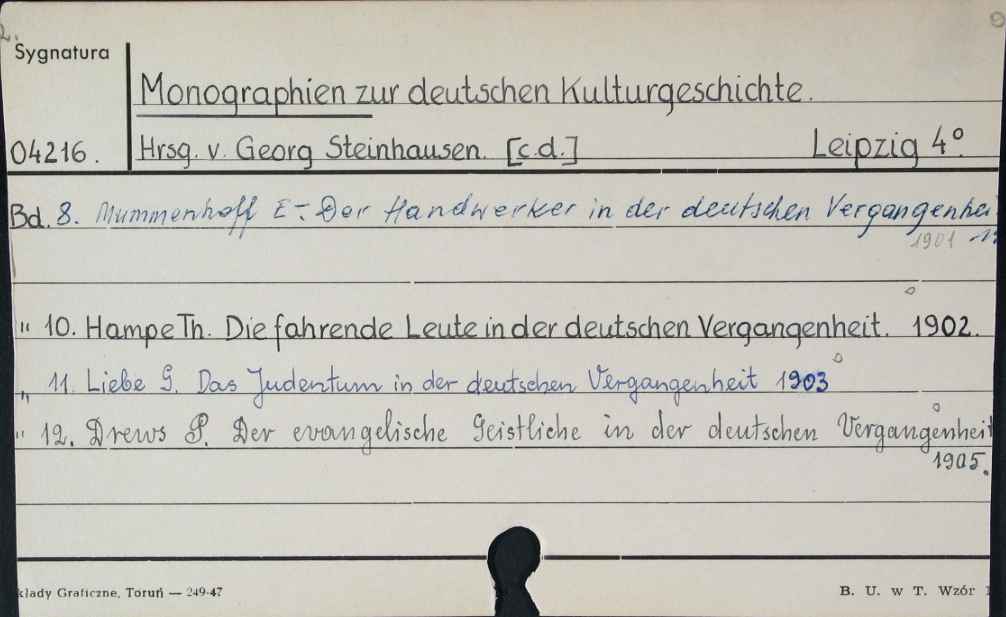 2.
Sygnatura
Monographien zur deutschen Kulturgeschichte.
04216. Hrsg. v. Georg Steinhausen. [c.d.] Leipzig 4°.
Bd. 8. Mummenhoff E. - Der Handwerker in der deutschen Vergangenhei
1901
" 10. Hampe Th. Die fahrende Leute in der deutschen Vergangenheit. 1902.
" 11. Liebe G. Das Judentum in der deutschen Vergangenheit 1903
" 12. Drews P. Der evangelische Geistliche in der deutschen Vergangenheit
1905.
kłady Graficzne, Toruń — 249-47
B. U. w T. Wzór 1